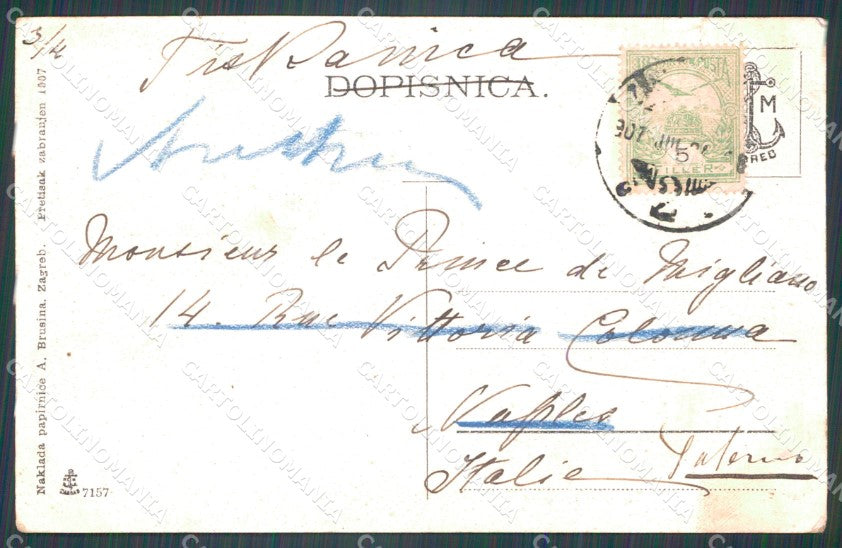 3/4
Tiskanica
DOPISNICA.
Monsieur le Prince de Migliano
14. Rue Vittoria Colonna
Naples
Italie
Palermo
5
FILLER
M
ZAGREB
Naklada papirnice A. Brusina. Zagreb. Pretisak zabranjen 1907
7157
CARTOLINOMANIA